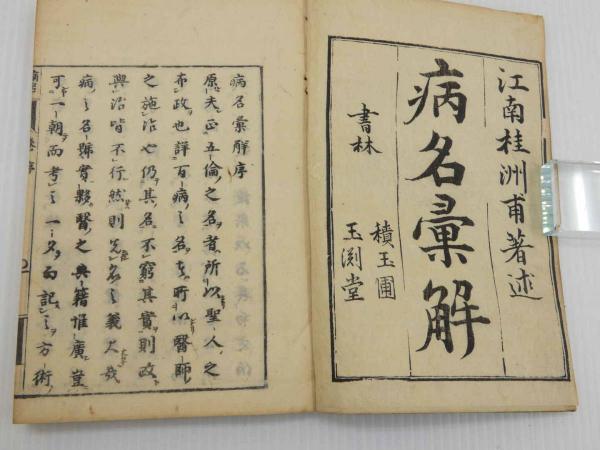 江南桂洲甫著述
病名彙解
書林
積玉圃
玉渕堂
病名彙解序
原夫正五倫之名者所以聖人之
布政也詳百病之名者所以醫師
之施治也仍其名不窮其實則政
與治皆不行然則名之義大哉
病之名號實夥醫之典籍惟廣豈
可一朝而考之一名而記之方術